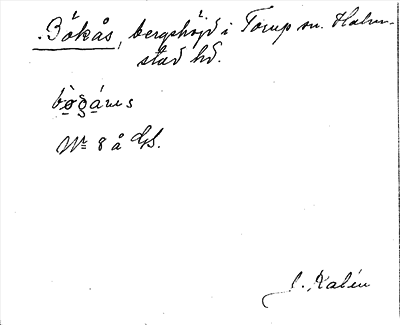 Bökås, bergshöjd i Torup sn. Halm-
stad hd.
bø̀gás
Nr 8 å GS.
J. Kalén